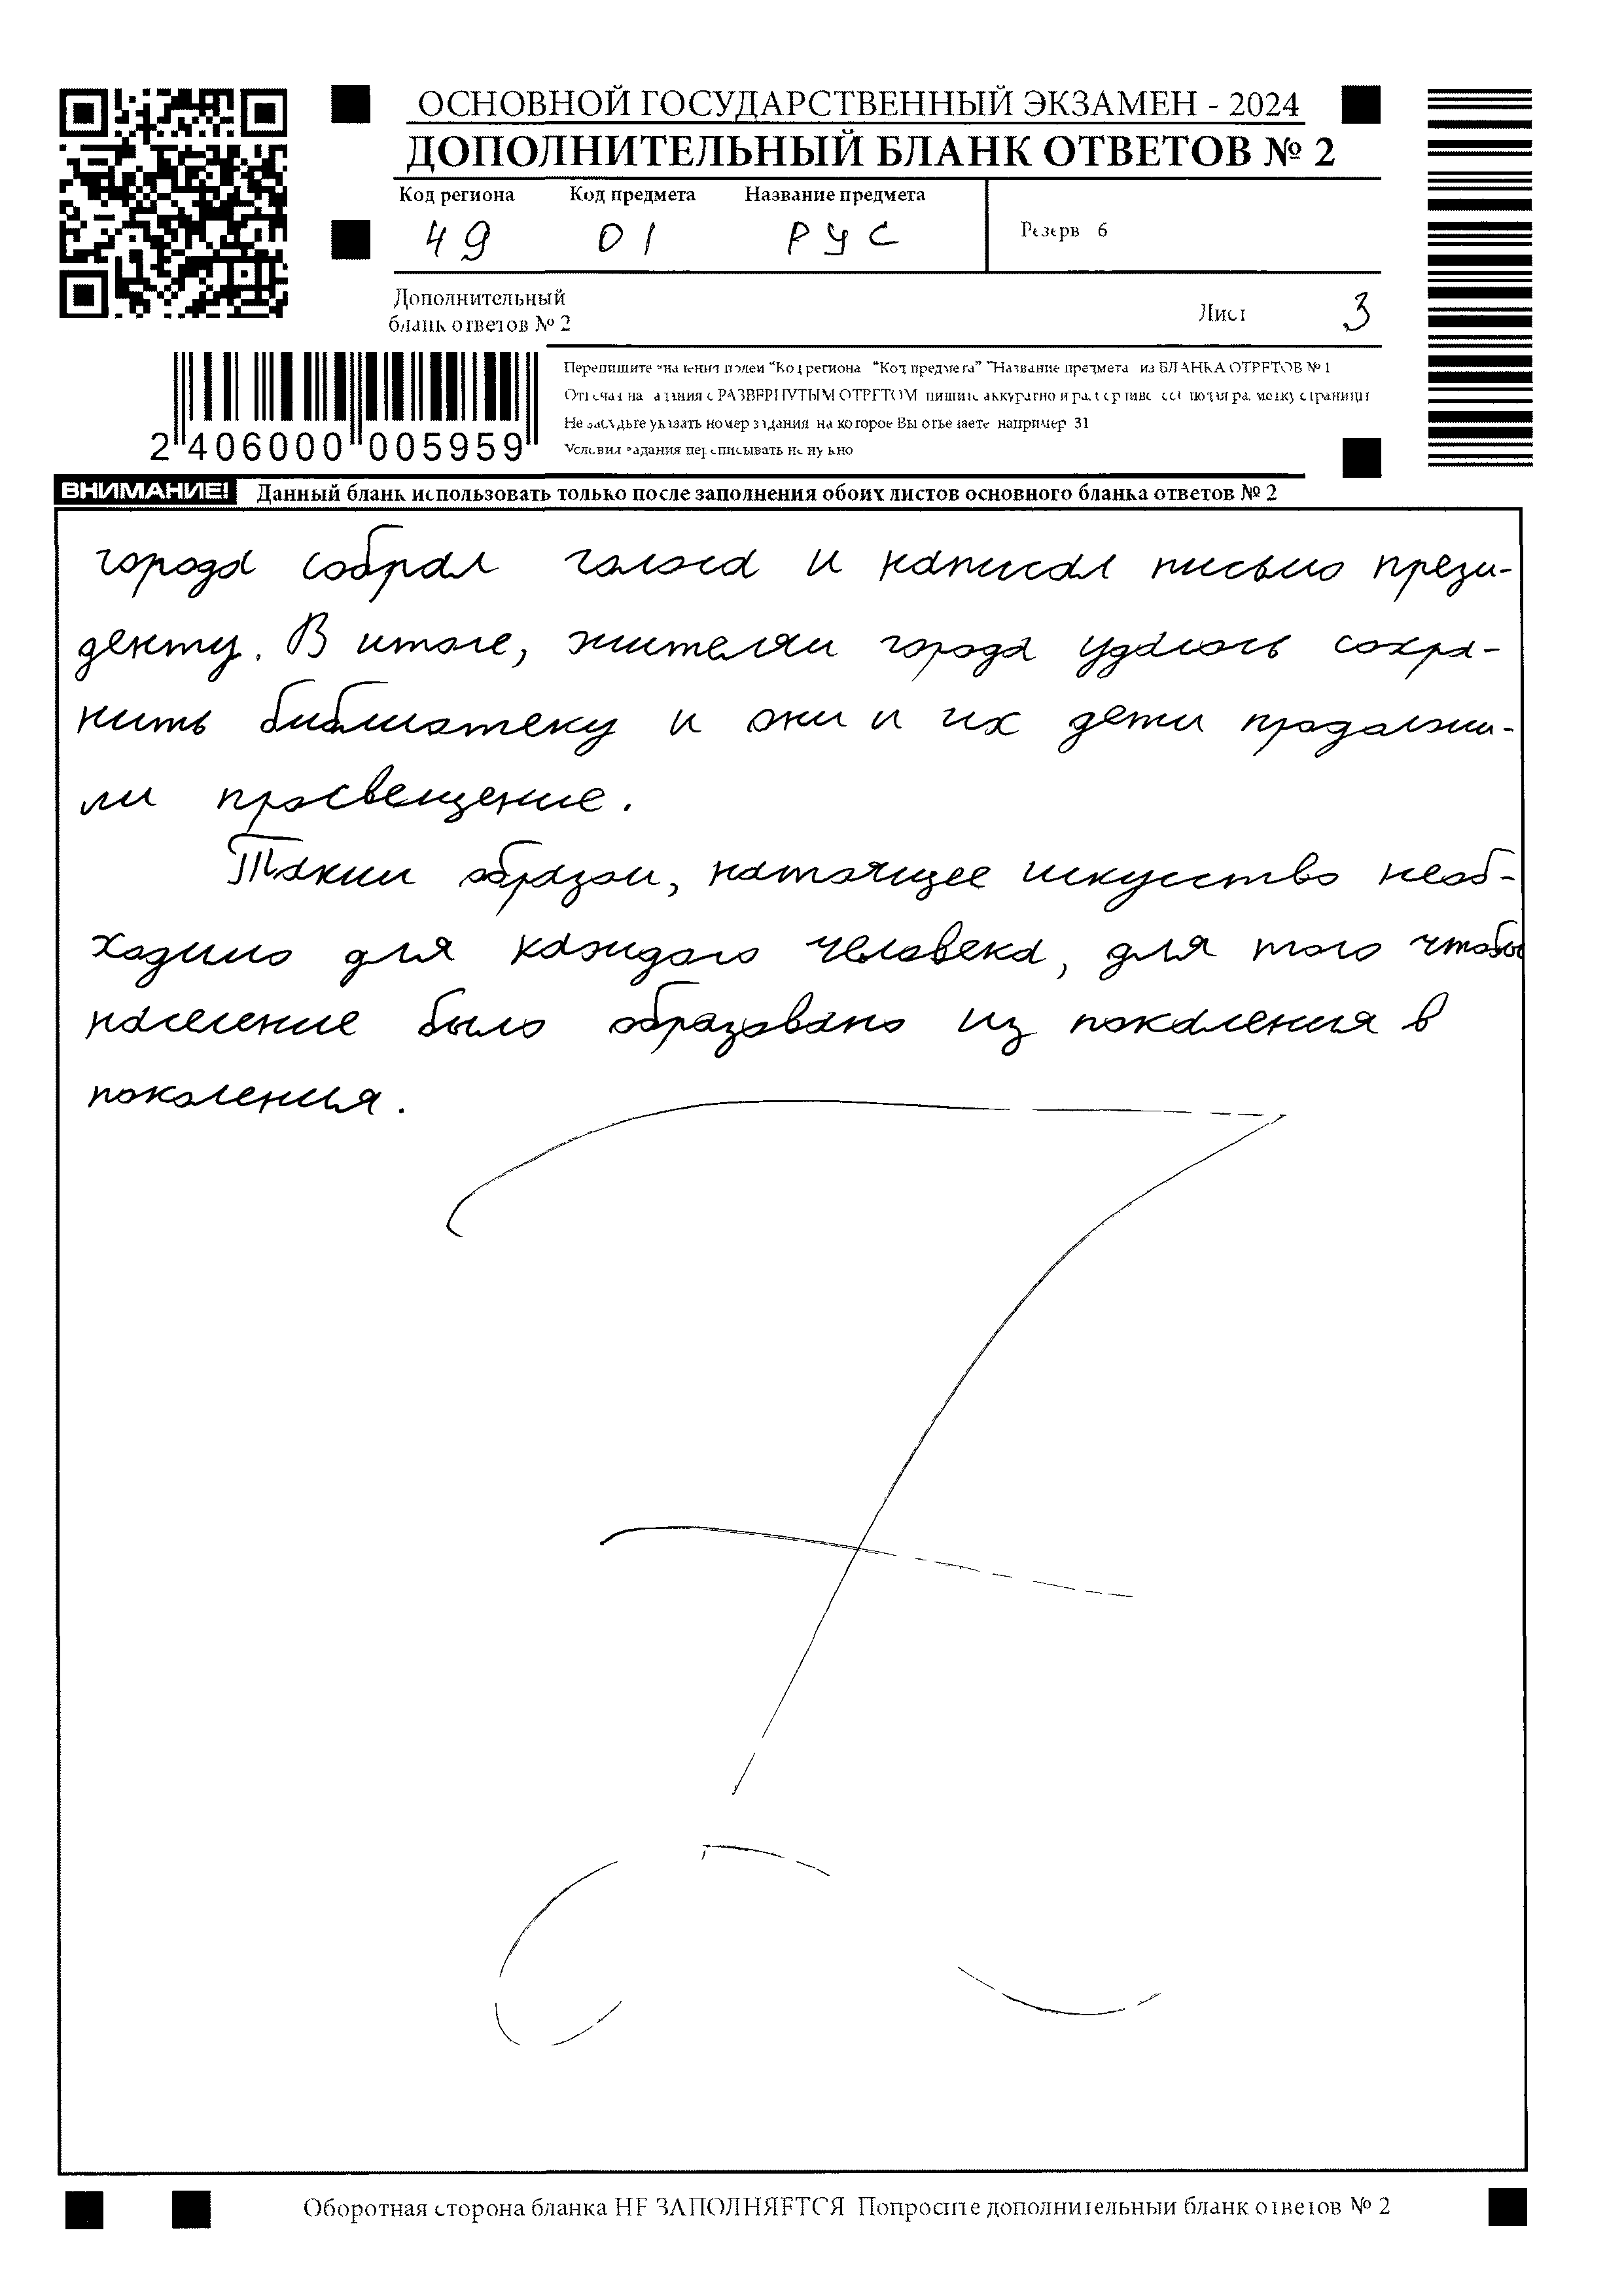 ОСНОВНОЙ ГОСУДАРСТВЕННЫЙ ЭКЗАМЕН - 2024
ДОПОЛНИТЕЛЬНЫЙ БЛАНК ОТВЕТОВ № 2
Код региона Код предмета Название предмета
49 01 РУС
Резерв 6
Дополнительный
бланк ответов № 2
Лист 3
Перепишите значения полей "Код региона" "Код предмета" "Название предмета" из БЛАНКА ОТВЕТОВ № 1
Отвечая на задания с РАЗВЕРНУТЫМ ОТВЕТОМ пишите аккуратно и разборчиво
Не забудьте указать номер задания на которое Вы отвечаете например 31
Условия задания переписывать не нужно
2 406000 005959
ВНИМАНИЕ! Данный бланк использовать только после заполнения обоих листов основного бланка ответов № 2
города собрал голоса и написал письмо прези-
денту. В итоге, жителям города удалось сохра-
нить библиатеку и они и их дети продолжи-
ли просвещение.
Таким образом, натоящее искусство необ-
ходимо для каждого человека, для того чтобы
население было образовано из поколения в
поколения.
Оборотная сторона бланка НЕ ЗАПОЛНЯЕТСЯ Попросите дополнительный бланк ответов № 2